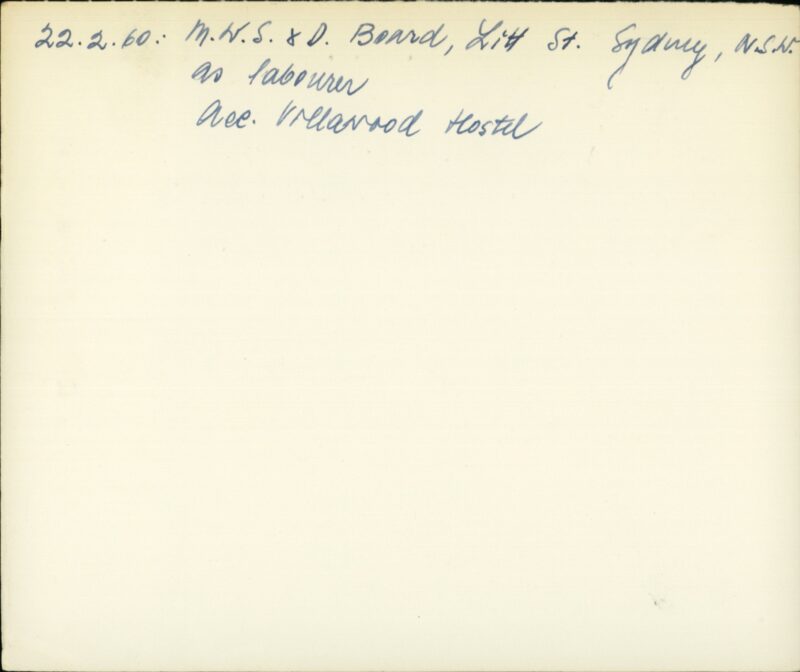 22.2.60: M.W.S. & D. Board, Litt St. Sydney, N.S.W.
as labourer
Acc. Villawood Hostel